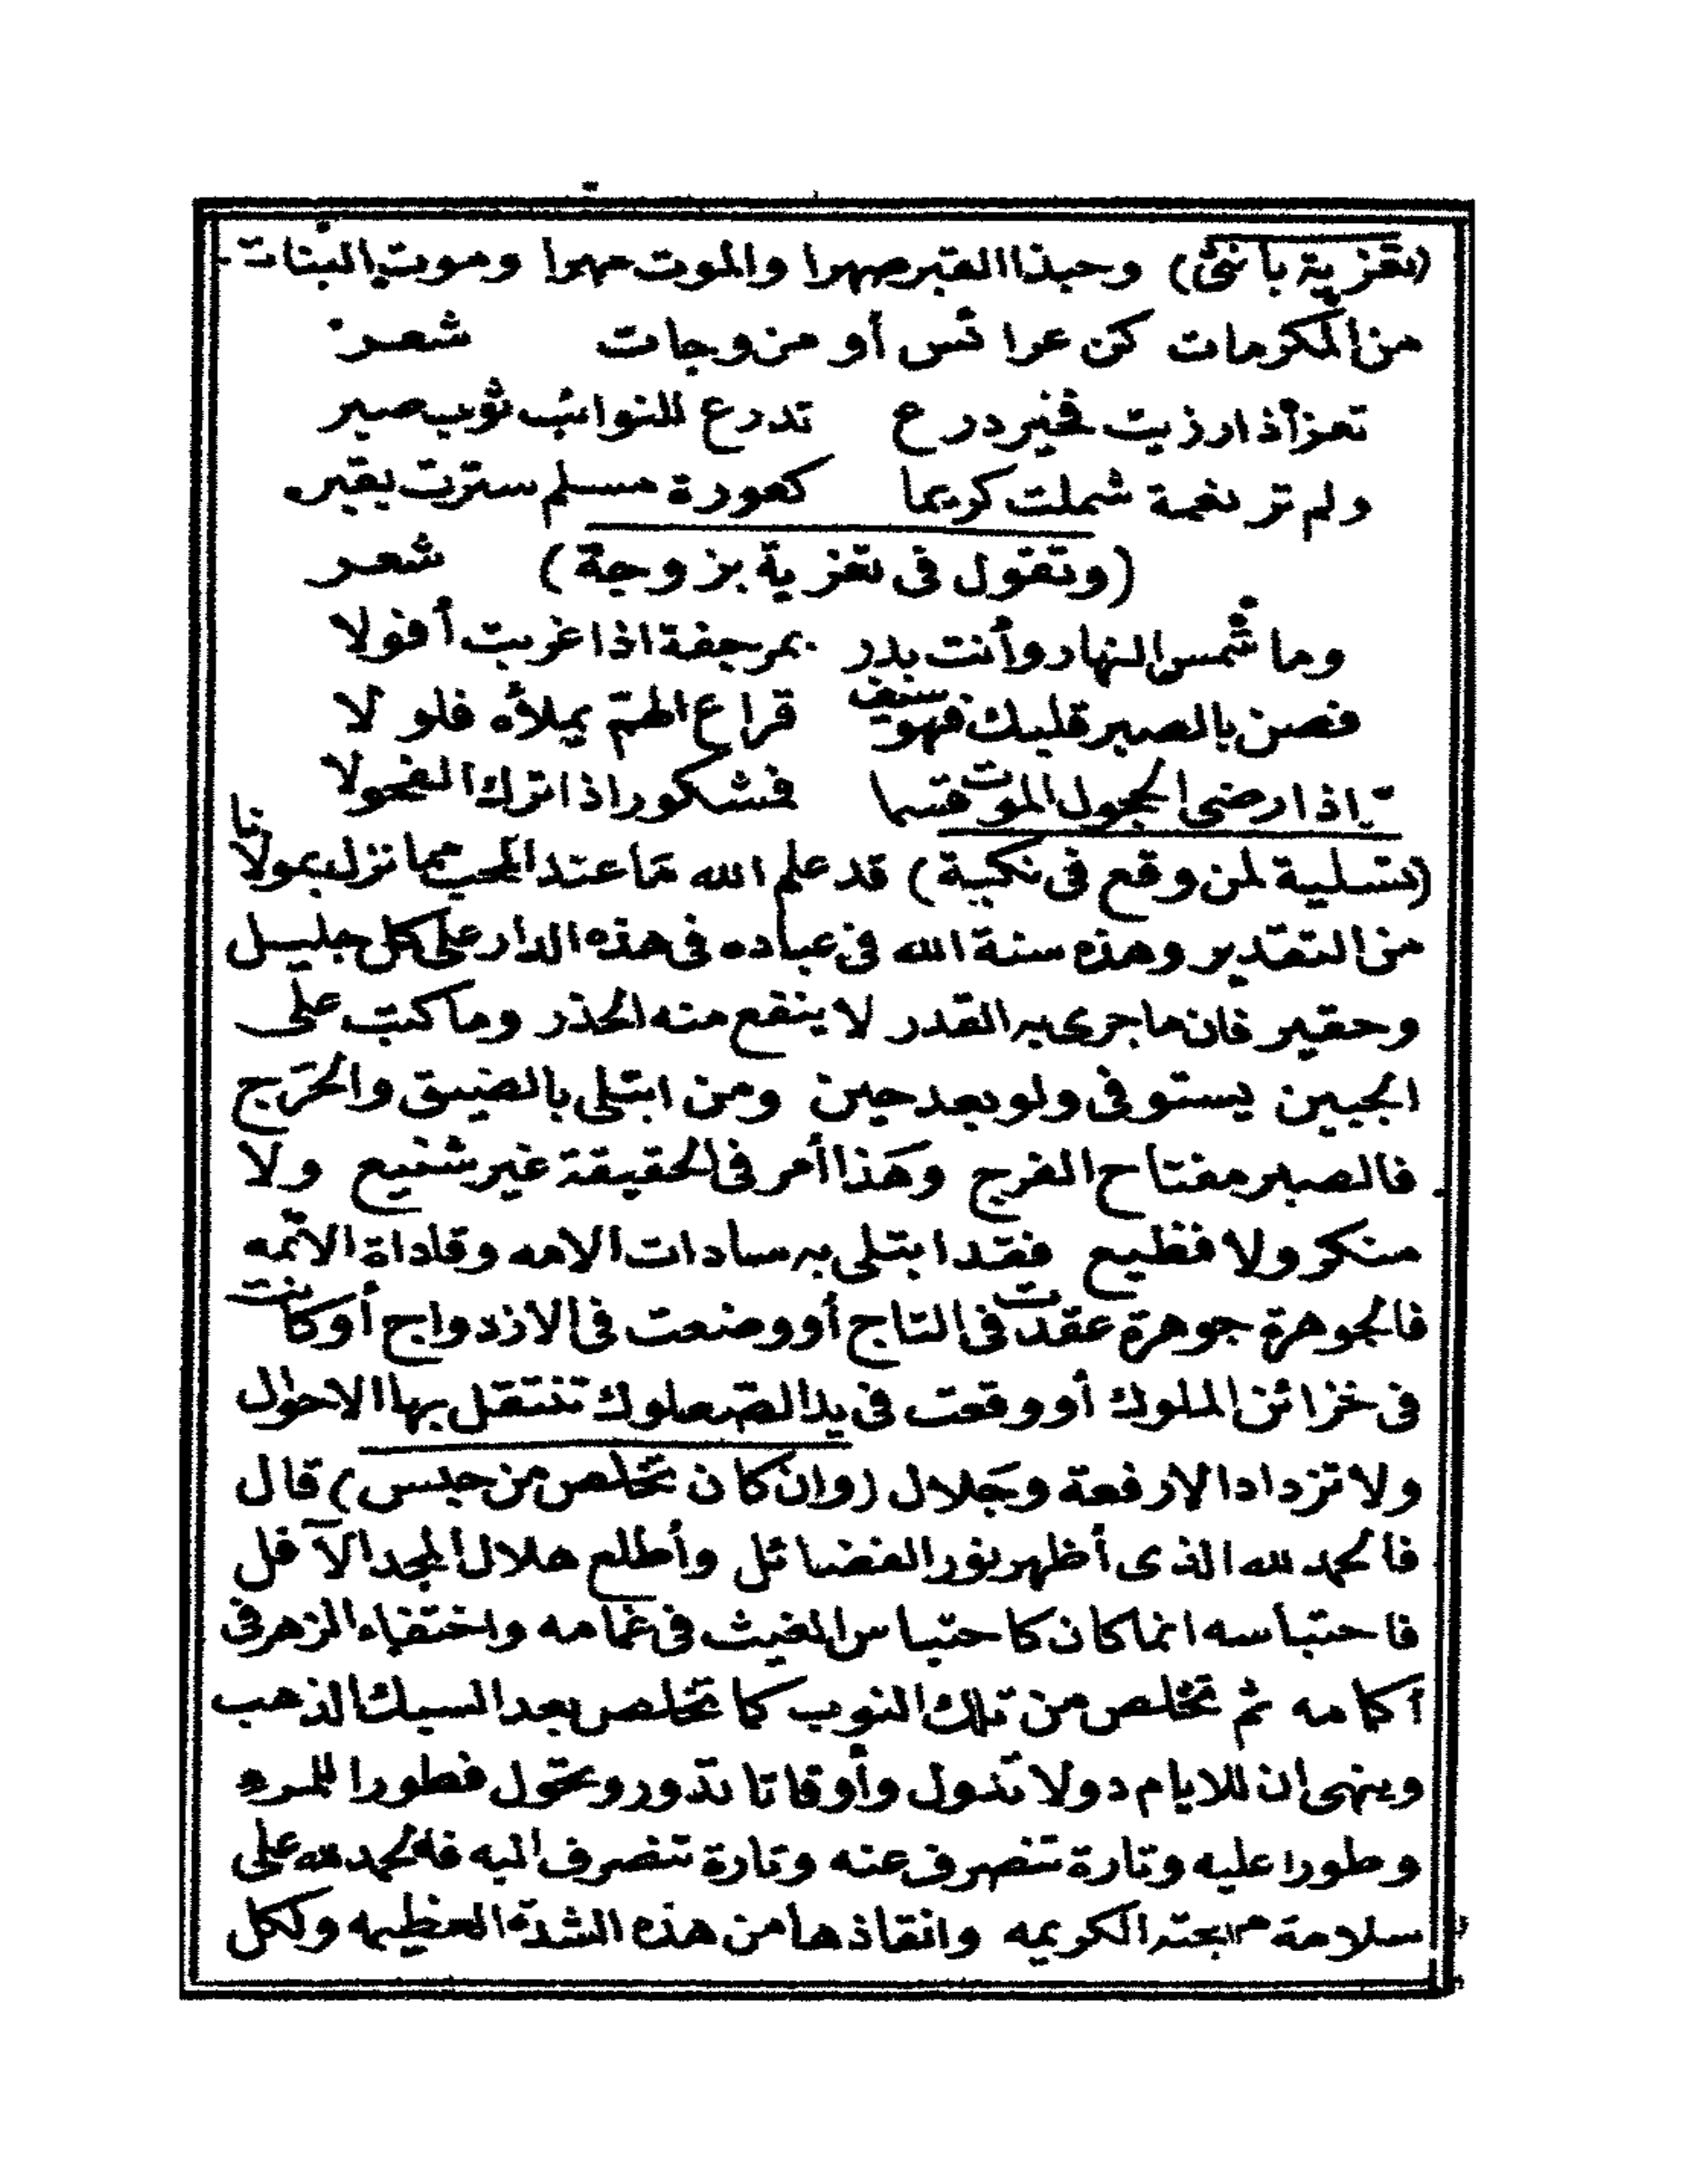 (تعزية بانثى) وحبذا القبر صهرا والموت مهرا وموت البنات
من المكرمات كن عرائس أو مزوجات شعر
تعز أذا رزيت فخير درع تدرع للنوائب ثوب صبر
ولم تر نعمة شملت كريما كعورة مسلم سترت بقبر
(وتقول فى تعزية بزوجة) شعر
وما شمس النهار وأنت بدر بمرجفة اذا غربت أفولا
فصن بالصبر قلبك فهو سيف قراع الهم يملأه فلولا
اذا رضى الحجول الموت قسما فشكورا اذا ترك الفحولا
(تسلية لمن وقع فى نكبة) قد علم الله ما عند المحب مما نزل بمولانا
من التقدير وهذه سنة الله فى عباده فى هذه الدار على كل جليل
وحقير فان ما جرى به القدر لا ينفع منه الحذر وما كتب على
الجبين يستوفى ولو بعد حين ومن ابتلى بالضيق والحرج
فالصبر مفتاح الفرج وهذا أمر فى الحقيقة غير شنيع ولا
منكر ولا فظيع فقد ابتلى به سادات الامه وقاداة الائمه
فالجوهرة جوهرة عقدت فى التاج أو وضعت فى الازدواج أو كانت
فى خزائن الملوك أو وقعت فى يد الصعلوك تنتقل بها الاحوال
ولا تزداد الا رفعة وجلال (وان كان تخلص من حبس) قال
فالحمد لله الذى أظهر نور الفضائل وأطلع هلال المجد الآفل
فاحتباسه انما كان كاحتباس الغيث فى غمامه واختفاء الزهر فى
أكمامه ثم تخلص من تلك النوب كما تخلص بعد السبك الذهب
وينهى ان للايام دولا تدول وأوقاتا تدور وتحول فطورا للمرء
وطورا عليه وتارة تنصرف عنه وتارة تنصرف اليه فالحمد لله على
سلامة مهجته الكريمه وانقاذها من هذه الشدة العظيمه ولكل